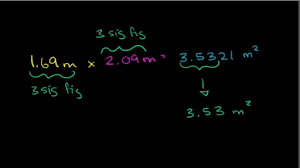 3 sig fig
1.69 m × 2.09 m = 3.5321 m²
3 sig fig
3.53 m²